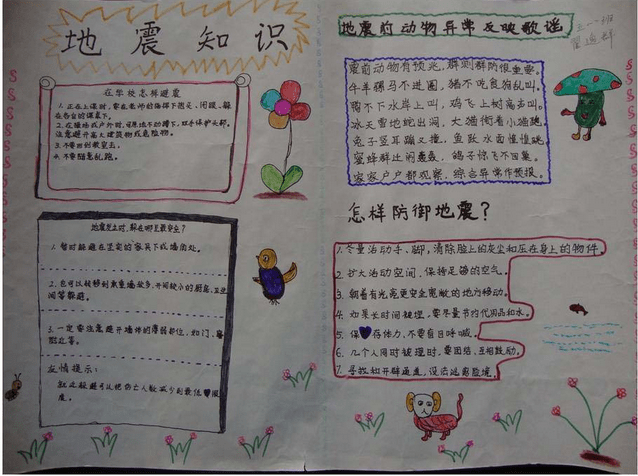 地震知识
在学校怎样避震
1. 正在上课时，要在老师的指挥下抱头、闭眼、躲
在各自的课桌下。
2. 在操场或户外时，可原地不动蹲下，双手保护头部，
注意避开高大建筑物或危险物。
3. 不要回到教室去。
4. 不要随意乱跑。
地震发生时，躲在哪里最安全？
1. 暂时躲避在坚实的家具下或墙角处。
2. 也可以转移到承重墙较多、开间较小的厨房、卫生
间等躲避。
3. 一定要注意避开墙体的薄弱部位，如门、窗
附近等。
友情提示：
就近躲避可以把伤亡人数减少到最低限
度。
地震前动物异常反映歌谣
三 班
震前动物有预兆，群测群防很重要。
牛羊骡马不进圈，猪不吃食狗乱叫。
鸭不下水岸上叫，鸡飞上树高声叫。
冰天雪地蛇出洞，大猫衔着小猫跳。
兔子竖耳蹦又撞，鱼跃水面惶惶跳。
蜜蜂群迁闹轰轰，鸽子惊飞不回巢。
家家户户都观察，综合异常作预报。
怎样防御地震？
1. 尽量活动手、脚，清除脸上的灰尘和压在身上的物件。
2. 扩大活动空间，保持足够的空气。
3. 朝着有光亮更安全宽敞的地方移动。
4. 如果长时间被埋，要尽量节约代用品和水。
5. 保存体力，不要盲目呼喊。
6. 几个人同时被埋时，要团结，互相鼓励。
7. 寻找和开辟通道，设法逃离险境。